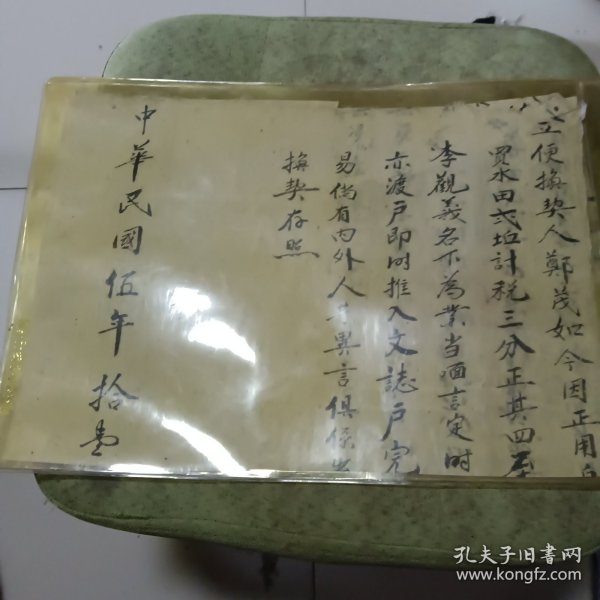 立便換契人鄭茂如今因正用自
買水田弍坵計稅三分正其四至
李觀義名下為業当面言定时
亦渡戶即时推入文誌戶完
易倘有内外人等異言俱係出
換契存照
中華民國伍年拾壹
孔夫子旧書网
www.kongfz.com